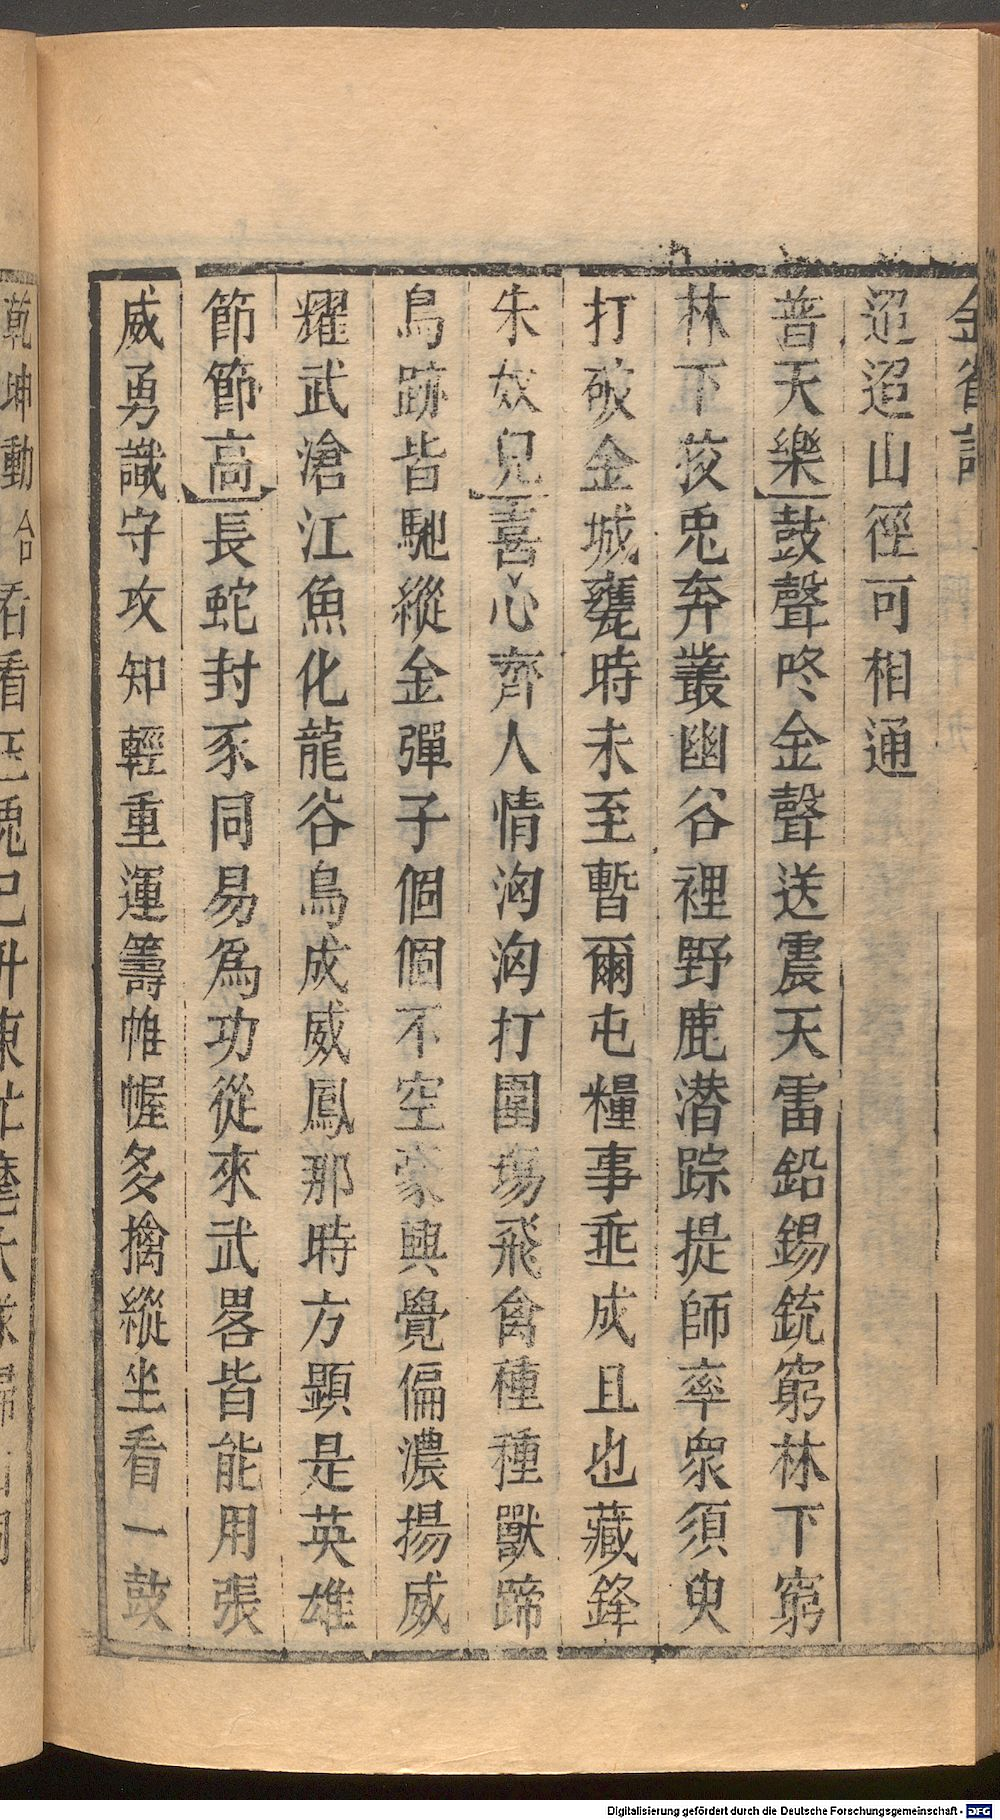 迢迢山徑可相通
普天樂鼓聲咚金聲送震天雷鉛錫銃窮林下窮
林下狡兎奔叢幽谷裡野鹿潜踪提師率衆須臾
打破金城甕時未至暫爾屯糧事乖成且也藏鋒
朱奴兒喜心齊人情洶洶打圍場飛禽種種獸蹄
鳥跡皆馳縱金彈子個個不空豪興覺偏濃揚威
耀武滄江魚化龍谷鳥成威鳳那時方顕是英雄
節節高長蛇封豕同易爲功從來武畧皆能用張
威勇識守攻知輕重運籌帷幄多擒縱坐看一鼓
乾坤動合
Digitalisierung gefördert durch die Deutsche Forschungsgemeinschaft - DFG